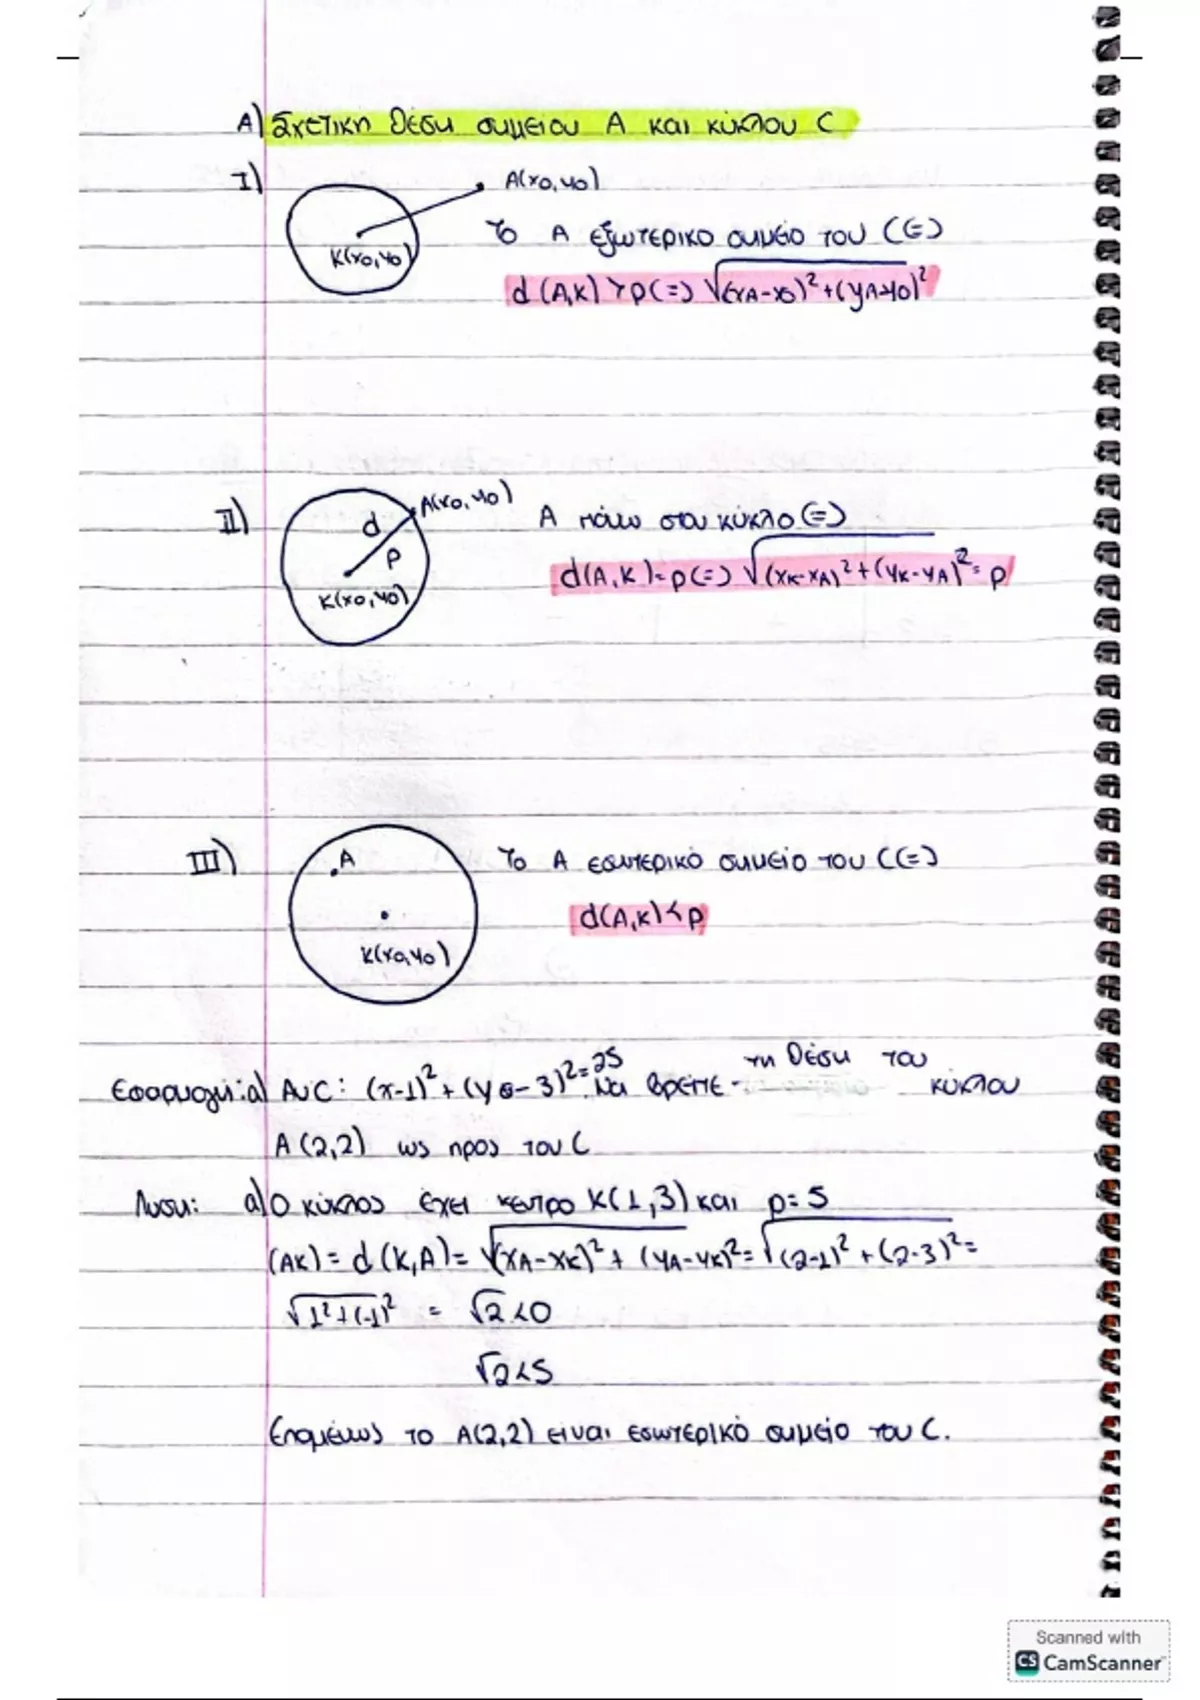 A) Σχετικη θέση σημειου A και κύκλου C
I)
A(x0,y0)
K(x0,y0)
Το A εξωτερικο σημείο του C(=)
d(A,K)>ρ(=) √(xA-x0)²+(yA-y0)²
II)
A(x0,y0)
d
ρ
K(x0,y0)
A πάνω στον κύκλο(=)
d(A,K)=ρ(=) √(xK-xA)²+(yK-yA)²=ρ
III)
A
K(x0,y0)
Το A εσωτερικό σημείο του C(=)
d(A,K)<ρ
Εφαρμογή: α) Αν C: (x-1)²+(y-3)²=25. Να βρειτε τη θέση του κύκλου
A(2,2) ως προς τον C
Λυση: α) Ο κύκλος έχει κεντρο K(1,3) και ρ=5
(AK)=d(K,A)=√(xA-xK)²+(yA-yK)²=√(2-1)²+(2-3)²=
√1²+(-1)² = √2<0
√2<5
Επομένως το A(2,2) ειναι εσωτερικό σημείο του C.
Scanned with
CS CamScanner